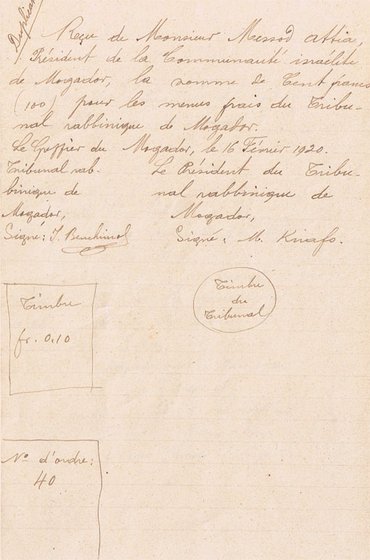 Duplicata
Reçu de Monsieur Messod Attia,
Président de la Communauté israélite
de Mogador, la somme de Cent francs
(100) pour les menus frais du Tribu-
nal rabbinique de Mogador.
Le Greffier du Mogador, le 16 Février 1920.
Tribunal rab- Le Président du Tribu-
binique de nal rabbinique de
Mogador, Mogador,
Signé: J. Benchimol Signé: M. Knafo.
Timbre
fr. 0.10
Timbre
du
Tribunal
No d'ordre:
40